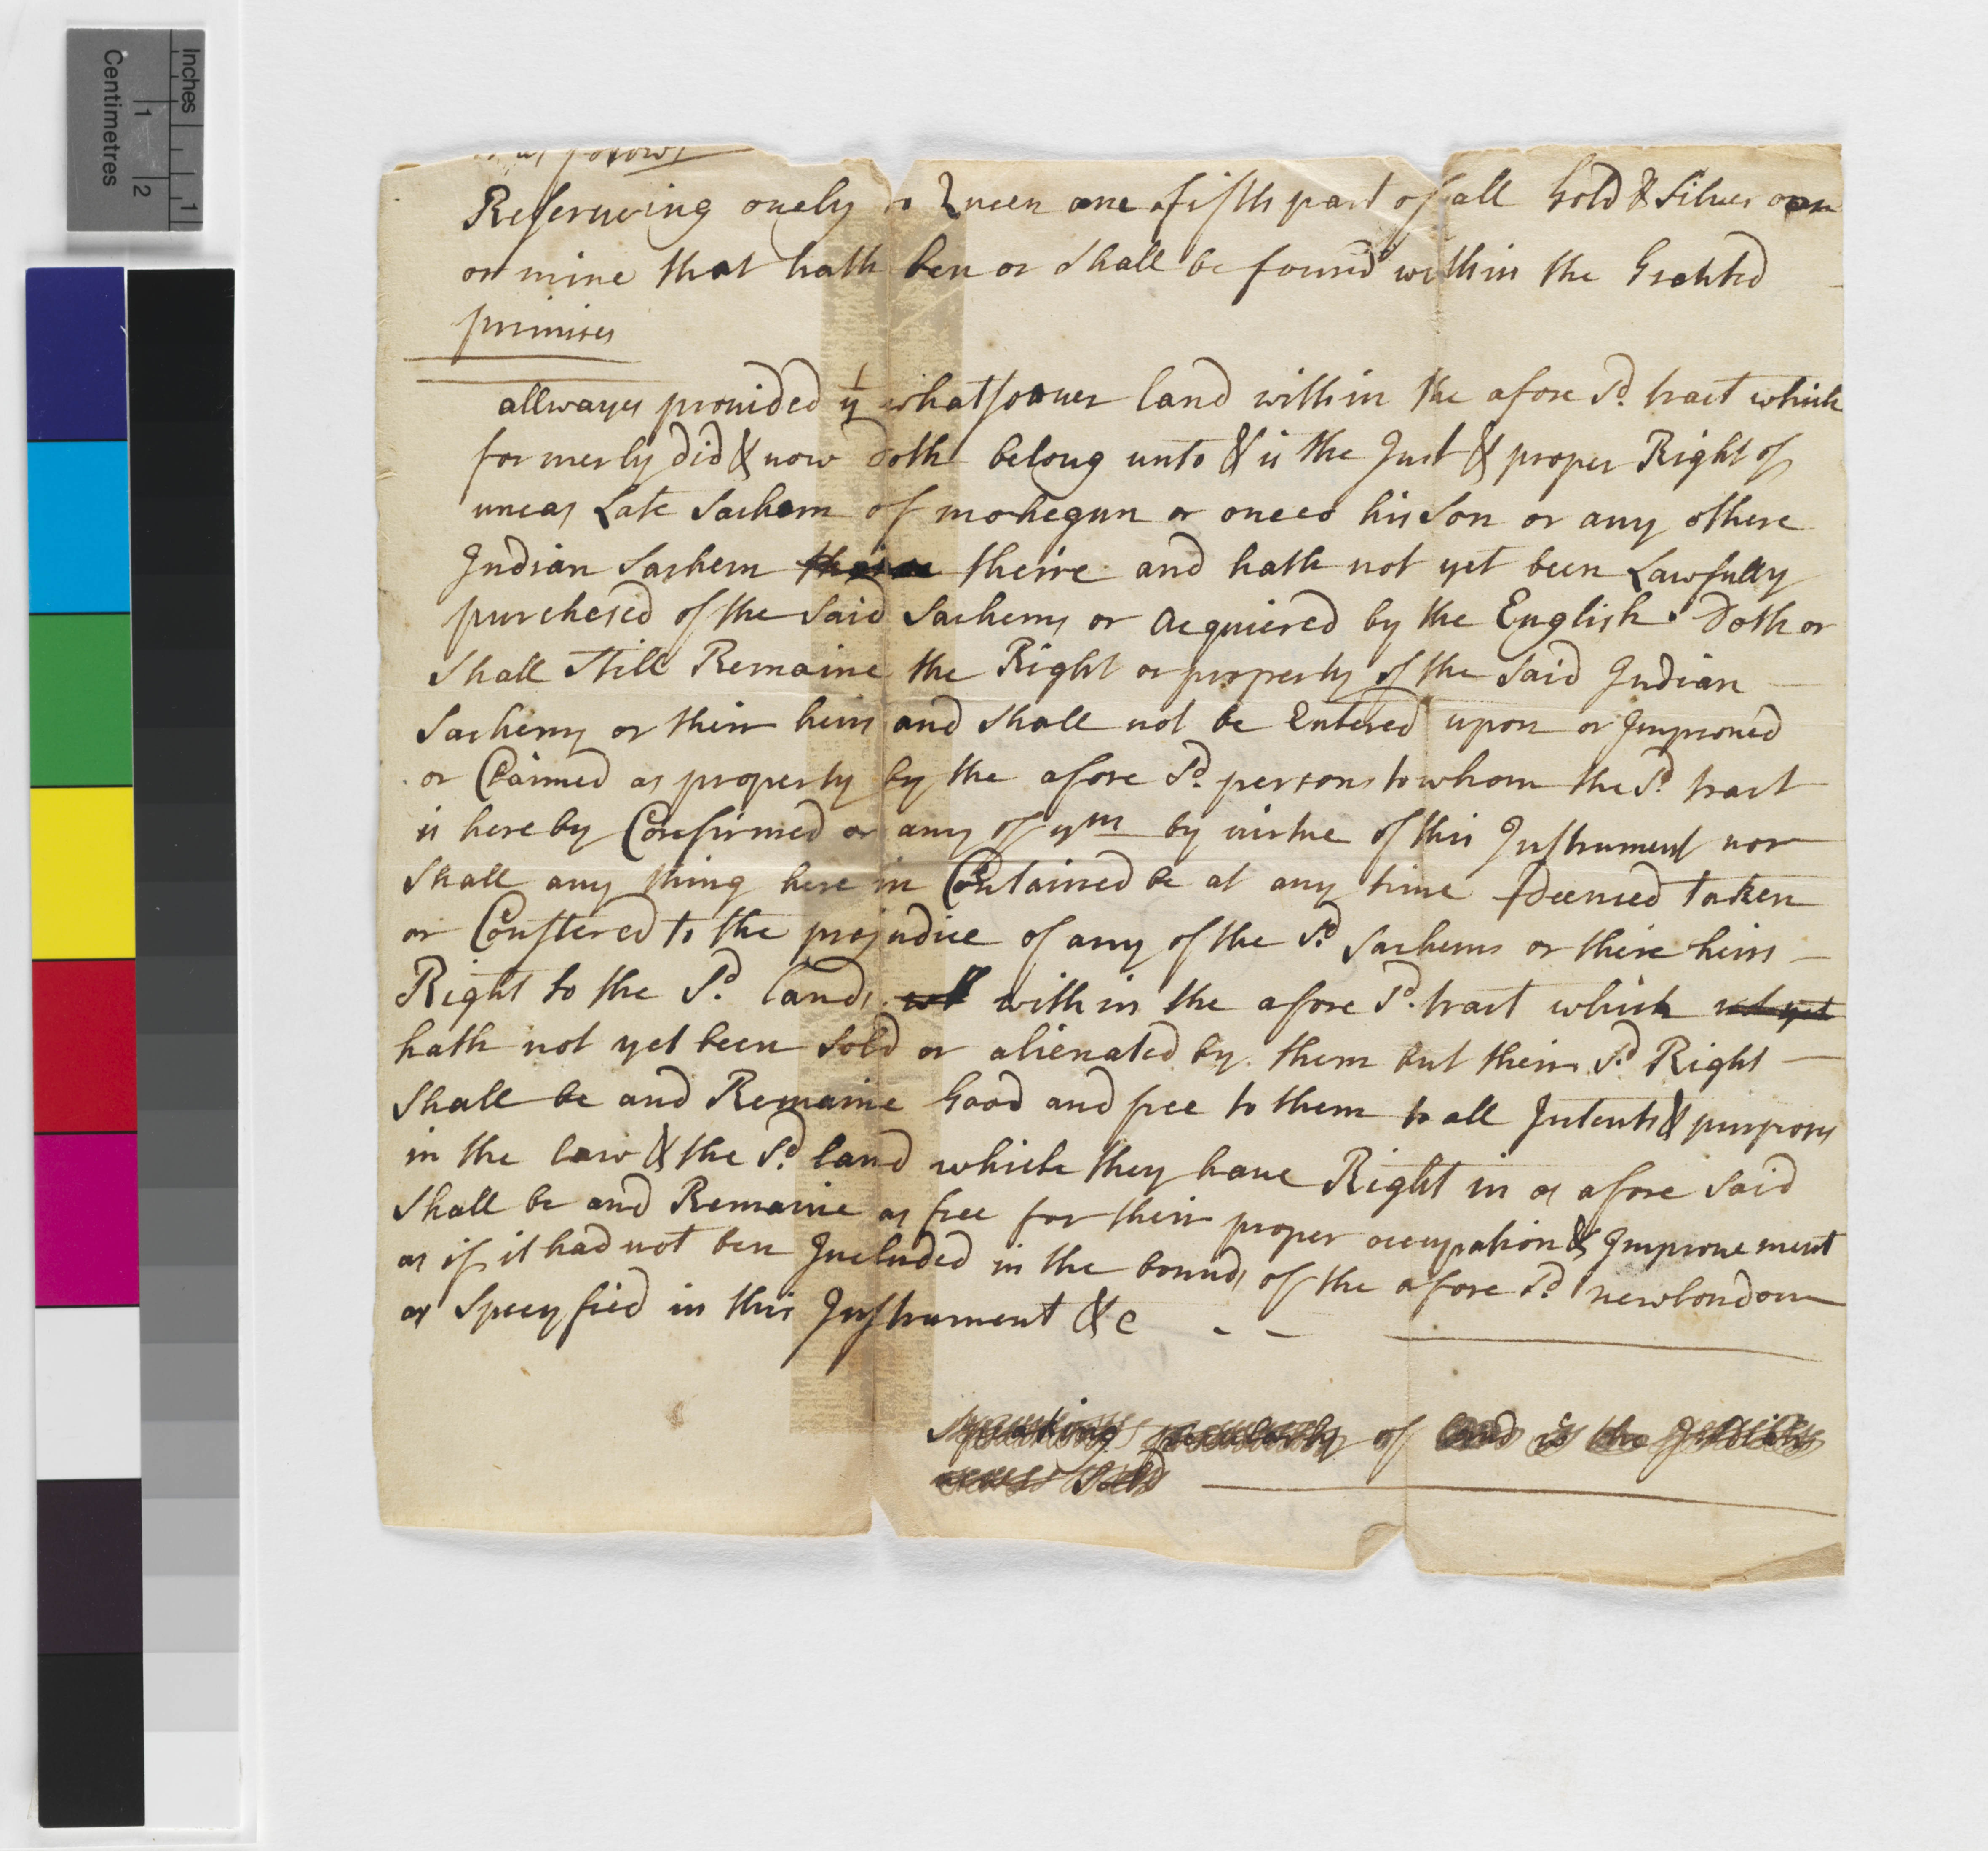 Inches
Centimetres
1
2
1
as follows
Reseruving onely to Queen one fifth part of all Gold & Silver oar
or mine that hath ben or shall be found within the Granted
premises
allwayes prouided yt whatsoauer land within the afore sd. tract which
formerly did & now doth belong unto & is the Just & proper Right of
uncas Late Sachem of mohegun or oneco his Son or any othere
Indian Sachem theire and hath not yet been Lawfully
purchesed of the said Sachems or acquiered by the English Doth or
Shall still Remaine the Right or property of the said Indian
Sachems or their heirs and shall not be Entered upon or Improued
or Claimed as property by the afore sd. persons to whom the sd. tract
is here by Confirmed or any of ym by uirtue of this Instrument nor
shall any thing here in Contained be at any time Deemed taken
or Constered to the prejudice of any of the sd. Sachems or theire heirs
Right to the sd. lands within the afore sd. tract which not yet
hath not yet been sold or alienated by them but their sd. Right
Shall be and Remaine Good and free to them to all Intents & purposes
in the law & the sd. land which they haue Right in as afore said
Shall be and Remaine as free for their proper occupation & Improuement
as if it had not ben Included in the bounds of the afore sd. newlondon
as specyfied in this Instrument &c
Speaking of land is the
sold